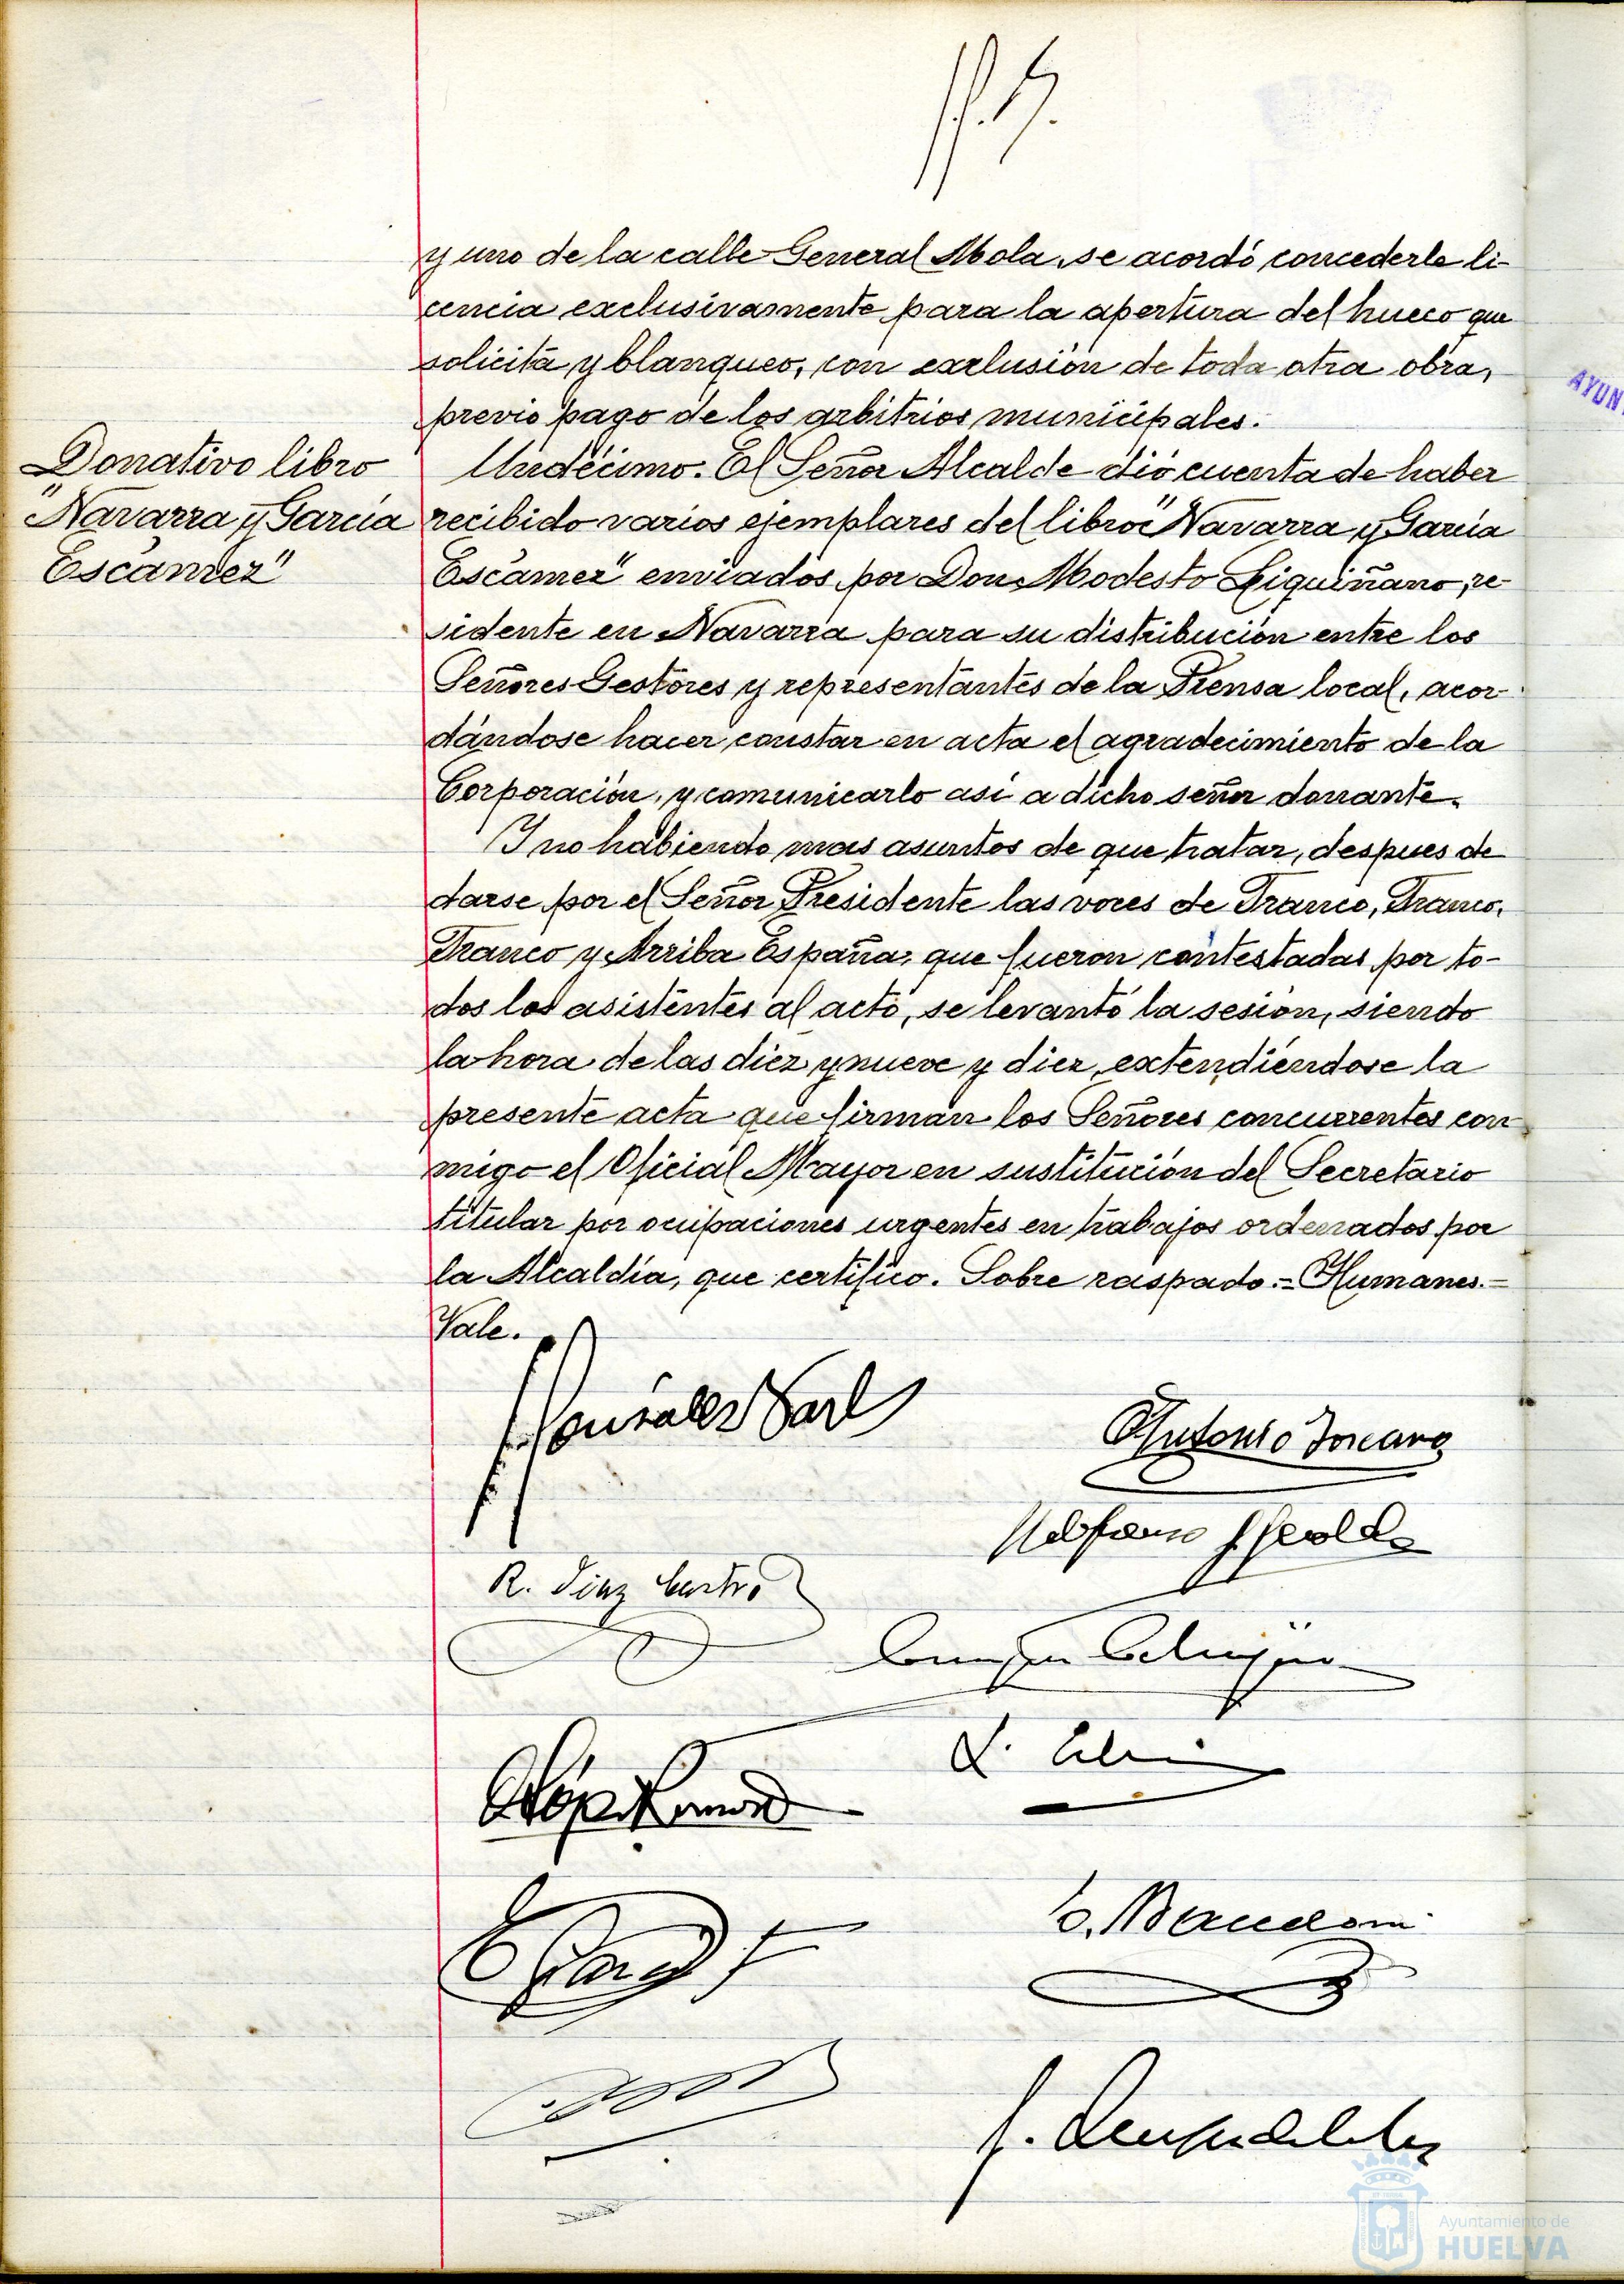 y uno de la calle General Mola, se acordó concederle li-
cencia exclusivamente para la apertura del hueco que
solicita y blanqueo, con exclusión de toda otra obra,
previo pago de los arbitrios municipales.
Donativo libro
"Navarra y García
Escámez"
Undécimo. El Señor Alcalde dió cuenta de haber
recibido varios ejemplares del libro "Navarra y García
Escámez" enviados por Don Modesto Liquiñano, re-
sidente en Navarra para su distribución entre los
Señores Gestores y representantes de la Prensa local, acor-
dándose hacer constar en acta el agradecimiento de la
Corporación, y comunicarlo así a dicho señor donante.
Y no habiendo mas asuntos de que tratar, despues de
darse por el Señor Presidente las voces de Franco, Franco,
Franco y Arriba España, que fueron contestadas por to-
dos los asistentes al acto, se levantó la sesión, siendo
la hora de las diez y nueve y diez, extendiéndose la
presente acta que firman los Señores concurrentes con
migo el Oficial Mayor en sustitución del Secretario
titular por ocupaciones urgentes en trabajos ordenados por
la Alcaldía, que certifico. Sobre raspado.- Humanes.-
Vale.
Antonio Toscano
R. Diaz Castro
AYUN
Ayuntamiento de
HUELVA